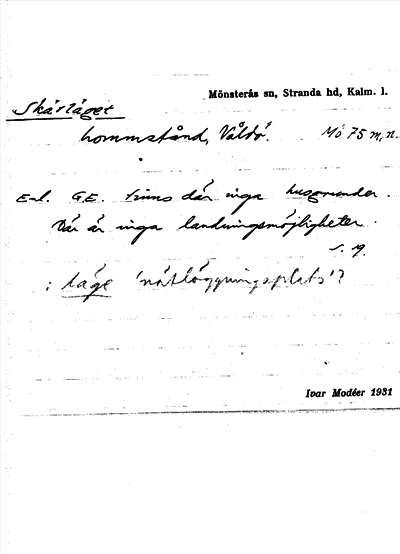 Mönsterås sn, Stranda hd, Kalm. l.
Skärläget
hommstånd, Våldö. Mö 75 m, n.
Enl. G.E. finns där inga husgrunder.
Där är inga landningsmöjligheter.
: läge 'nätläggningsplats'?
Ivar Modéer 1931